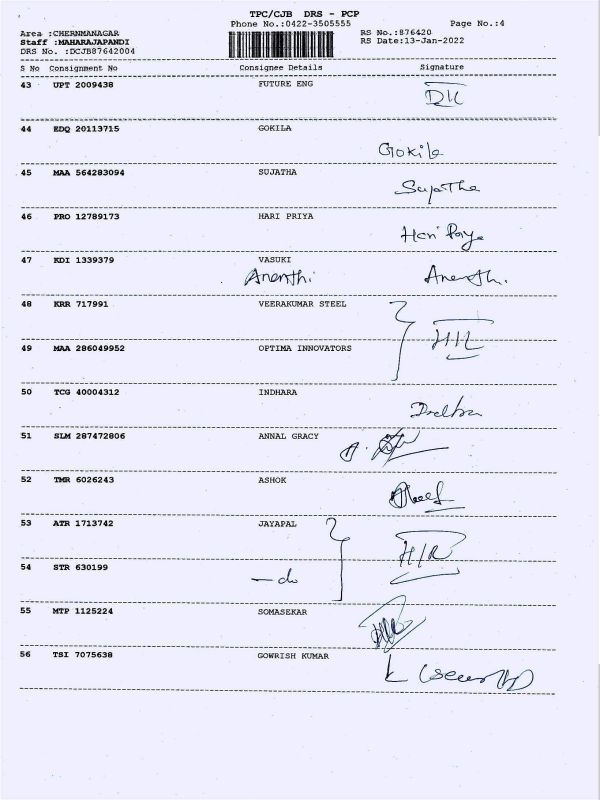 TPC/CJB DRS - PCP
Phone No.:0422-3505555
Page No.:4
Area :CHERNMANAGAR
RS No.:876420
Staff :MAHARAJAPANDI
RS Date:13-Jan-2022
DRS No. :DCJB87642004
S No Consignment No Consignee Details Signature
43 UPT 2009438 FUTURE ENG
44 EDQ 20113715 GOKILA
Gokila
45 MAA 564283094 SUJATHA
Sujatha
46 PRO 12789173 HARI PRIYA
47 KDI 1339379 VASUKI
Ananthi Ananthi.
48 KRR 717991 VEERAKUMAR STEEL
49 MAA 286049952 OPTIMA INNOVATORS
50 TCG 40004312 INDHARA
51 SLM 287472806 ANNAL GRACY
52 TMR 6026243 ASHOK
53 ATR 1713742 JAYAPAL
H/R
54 STR 630199
— do
55 MTP 1125224 SOMASEKAR
56 TSI 7075638 GOWRISH KUMAR